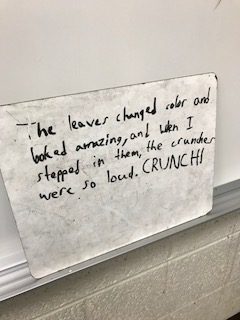 The leaves changed color and
looked amazing, and when I
stepped in them, the crunches
were so loud. CRUNCH!